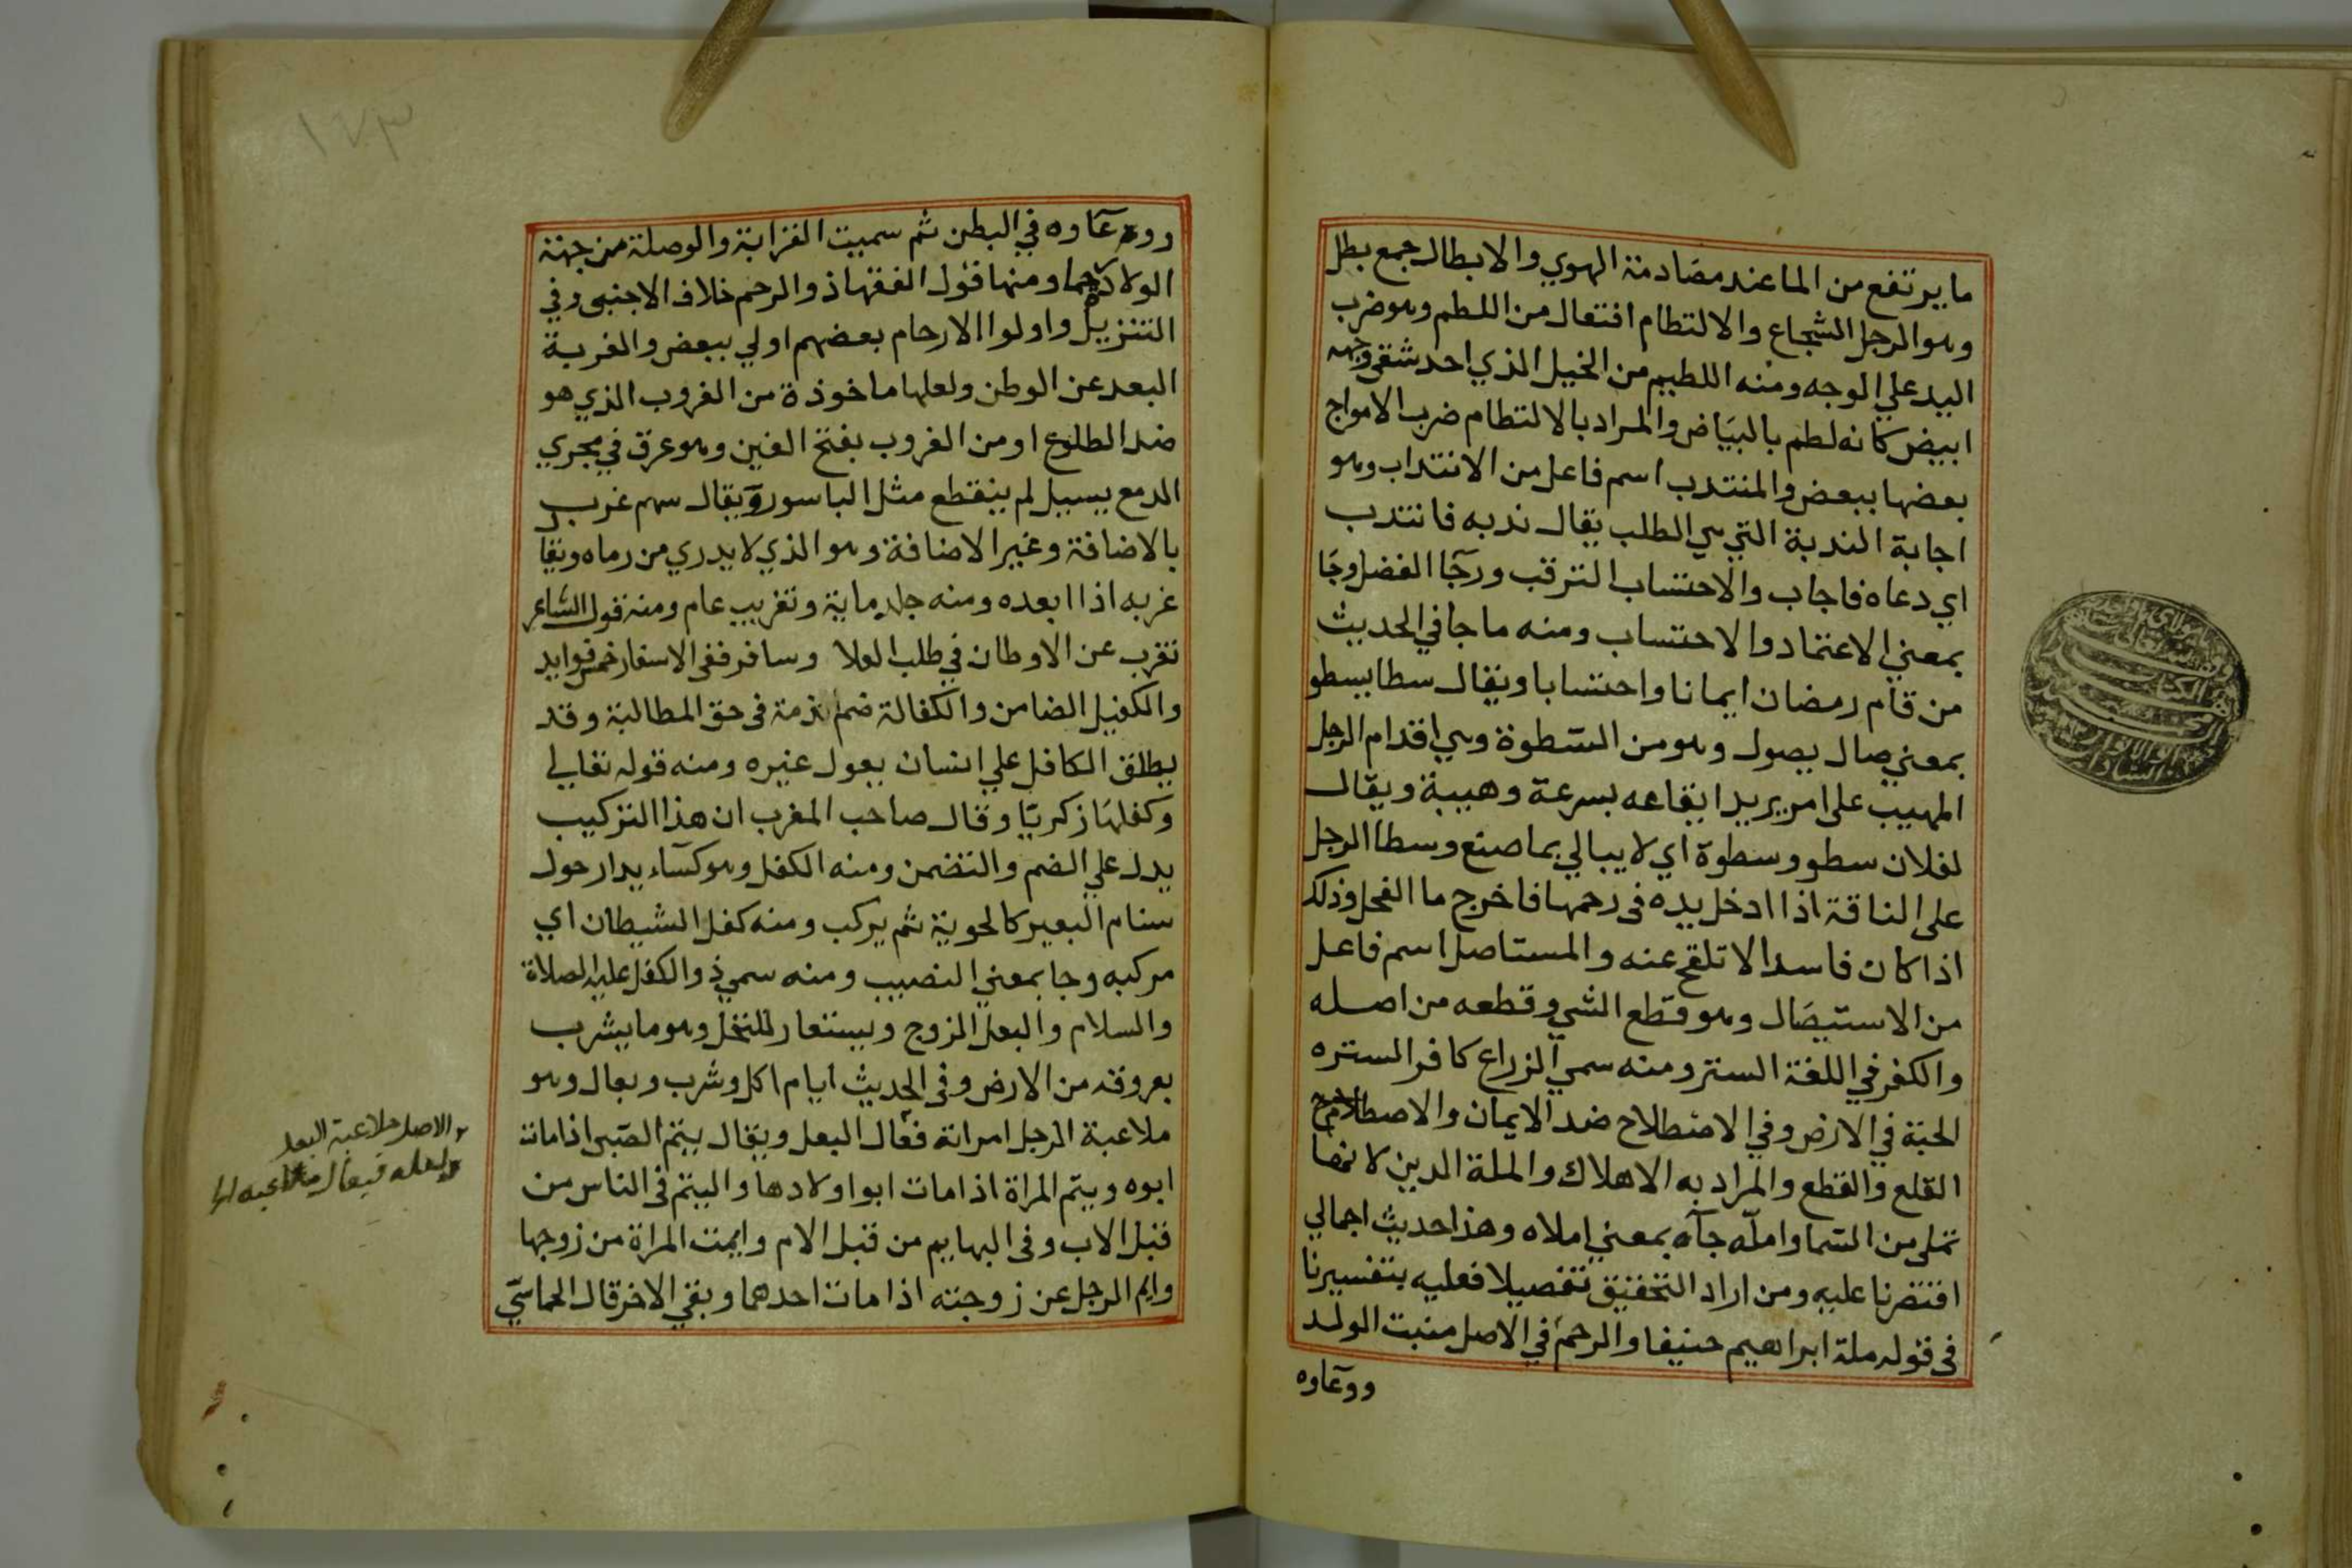 ما يرتفع من الما عند مصادمة الهوي والابطال جمع بطل
وهو الرجل الشجاع والالتطام افتعال من اللطم وهو ضرب
اليد علي الوجه ومنه اللطيم من الخيل الذي احد شقي وجهه
ابيض كانه لطم بالبياض والمراد بالالتطام ضرب الامواج
بعضها ببعض والمنتدب اسم فاعل من الانتداب وهو
اجابة الندبة التي هي الطلب يقال ندبه فانتدب
اي دعاه فاجاب والاحتساب الترقب ورجآ الفضل وجا
بمعني الاعتماد والاحتساب ومنه ما جا في الحديث
من قام رمضان ايمانا واحتسابا ويقال سطا يسطو
بمعني صال يصول وهو من السطوة وهي اقدام الرجل
المهيب على امر يريد ايقاعه بسرعة وهيبة ويقال
لفلان سطو وسطوة اي لا يبالي بما صنع وسطا الرجل
على الناقة اذا ادخل يده فى رحمها فاخرج ما الفحل وذلك
اذا كان فاسدا لا تلقح عنه والمستاصل اسم فاعل
من الاستيصال وهو قطع الشي وقطعه من اصله
والكفر في اللغة الستر ومنه سمي الزراع كافرا لستره
الحبة في الارض وفي الاصطلاح ضد الايمان والاصطلام
القلع والقطع والمراد به الاهلاك والملة الدين لانها
تملى من السما واملّه جآء بمعني املاه وهذا حديث اجمالي
اقتصرنا عليه ومن اراد التحقيق تفصيلا فعليه بتفسيرنا
فى قوله ملة ابراهيم حنيفا والرحم في الاصل منبت الولد
ووعآوه
ووعآوه في البطن ثم سميت القرابة والوصلة من جهة
الولاد رحما ومنها قول الفقها ذو الرحم خلاف الاجنبى وفي
التنزيل واولوا الارحام بعضهم اولي ببعض والغربة
البعد عن الوطن ولعلها ماخوذة من الغروب الذي هو
ضد الطلوع او من الغروب بفتح الغين وهو عرق في مجري
الدمع يسيل لم ينقطع مثل الباسور ويقال سهم غرب
بالاضافة وغير الاضافة وهو الذي لا يدري من رماه ويقا
غربه اذا ابعده ومنه جلد ماية وتغريب عام ومنه قول الشاعر
تغرب عن الاوطان في طلب العلا وسافر ففى الاسفار خمس فوايد
والكفيل الضامن والكفالة ضم ذمة فى حق المطالبة وقد
يطلق الكافل علي انسان يعول غيره ومنه قوله تعالي
وكفلها زكريا وقال صاحب المغرب ان هذا التركيب
يدل علي الضم والتضمن ومنه الكفل وهو كسآء يدار حول
سنام البعير كالحوية ثم يركب ومنه كفل الشيطان اي
مركبه وجا بمعني النصيب ومنه سمي ذو الكفل عليه الصلاة
والسلام والبعل الزوج ويستعار للنخل وهو ما يشرب
بعروقه من الارض وفى الحديث ايام اكل وشرب وبعال وهو
ملاعبة الرجل امراته فعّال البعل ويقال يتم الصبى اذا مات
ابوه ويتم المراة اذا مات ابو اولادها واليتم فى الناس من
قبل الاب وفى البهايم من قبل الام وايمت المراة من زوجها
وايم الرجل عن زوجته اذا مات احدهما وبقي الاخر قال الحماسي
والاصل ملاعبة البعل